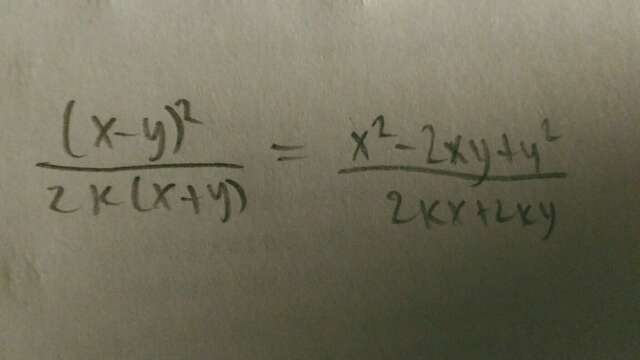 (x-y)² / 2k(x+y) = x²-2xy+y² / 2kx+2ky